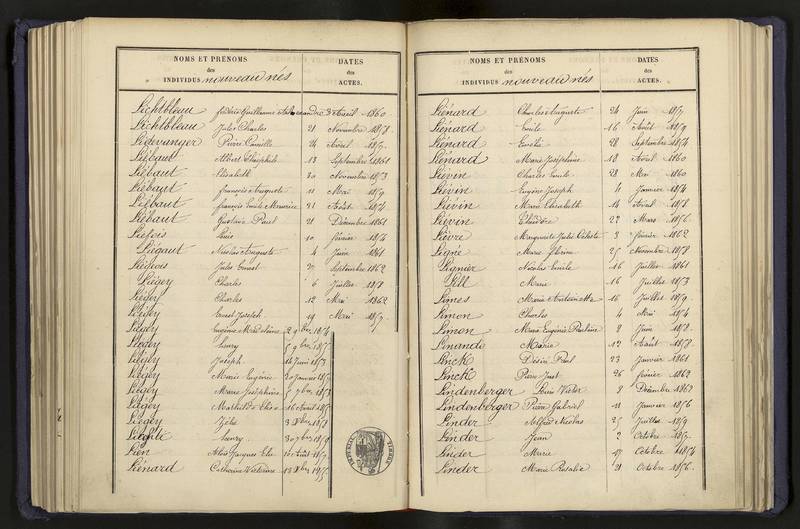 NOMS ET PRÉNOMS
des
INDIVIDUS nouveau nés
DATES
des
ACTES.
Lichtbleau Frédéric Guillaume Alexandre 3 Avril 1860
Lichtbleau Jules Charles 21 Novembre 1858
Liedevanger Pierre Camille 24 Avril 185
Liébaut Albert Théophile 13 Septembre 1861
Liébaut Elisabeth 30 Novembre 1853
Liébaut françois Auguste 11 Mai 1859
Liébaut françois Emile Maurice 21 Août 1854
Liébaut Gustave Paul 21 Décembre 1861
Liefois 10 février 1854
Liégaut Nicolas Auguste 4 Juin 1861
Liégeois Jules Ernest Septembre 1862
Liégey Charles 6 Juillet 1858
Liégey Charles 12 Mai 1862
Liégey Ernest Joseph 19 Mai 185
Liégey Eugénie Madeleine 2 9bre 1854
Liégey henry 5 9bre 185
Liégey Joseph 14 Juin 1853
Liégey Marie Eugénie 30 Janvier 185
Liégey Marie Joséphine 5 7bre 1853
Liégey Mathilde Elisa 16 Août 185
Liégey Zélie 3 Xbre 1858
henry 30 7bre 1859
Lien Aloïs Jacques Elie 10 Août 185
Liénard Catherine Victorine 13 Xbre 185
NOMS ET PRÉNOMS
des
INDIVIDUS nouveau nés
DATES
des
ACTES.
Liénard Charles Auguste 24 Juin 185
Liénard Emile 16 Août 1859
Liénard Emélie 28 Septembre 1854
Liénard Marie Joséphine 18 Avril 1860
Liévin Charles Emile 28 Mai 1860
Liévin Eugène Joseph 4 Janvier 1854
Liévin Marie Elisabeth 14 Avril 1858
Liévin Théodore 22 Mars 1856
Lièvre Marguerite Julie Céleste 3 février 1862
Ligné Marie 25 Novembre 1858
Lignier Nicolas Emile 16 Juillet 1861
Lill Marie 16 Juillet 1853
Limes Marie Antoinette 16 Juillet 1859
Limon Charles 4 Mai 1854
Limon Marie Eugénie Pauline 2 Juin 1858
Linande Marie 12 Août 1858
Linck Désiré Paul 23 Janvier 1861
Linck Pierre Just 26 février 1862
Lindenberger Louis Victor 2 Décembre 1862
Lindenberger Pierre Gabriel 11 Janvier 1856
Linder Alfred Nicolas 25 Juillet 1859
Linder Jean 2 Octobre 185
Linder Marie 17 Octobre 1854
Linder Marie Rosalie 21 Octobre 1856